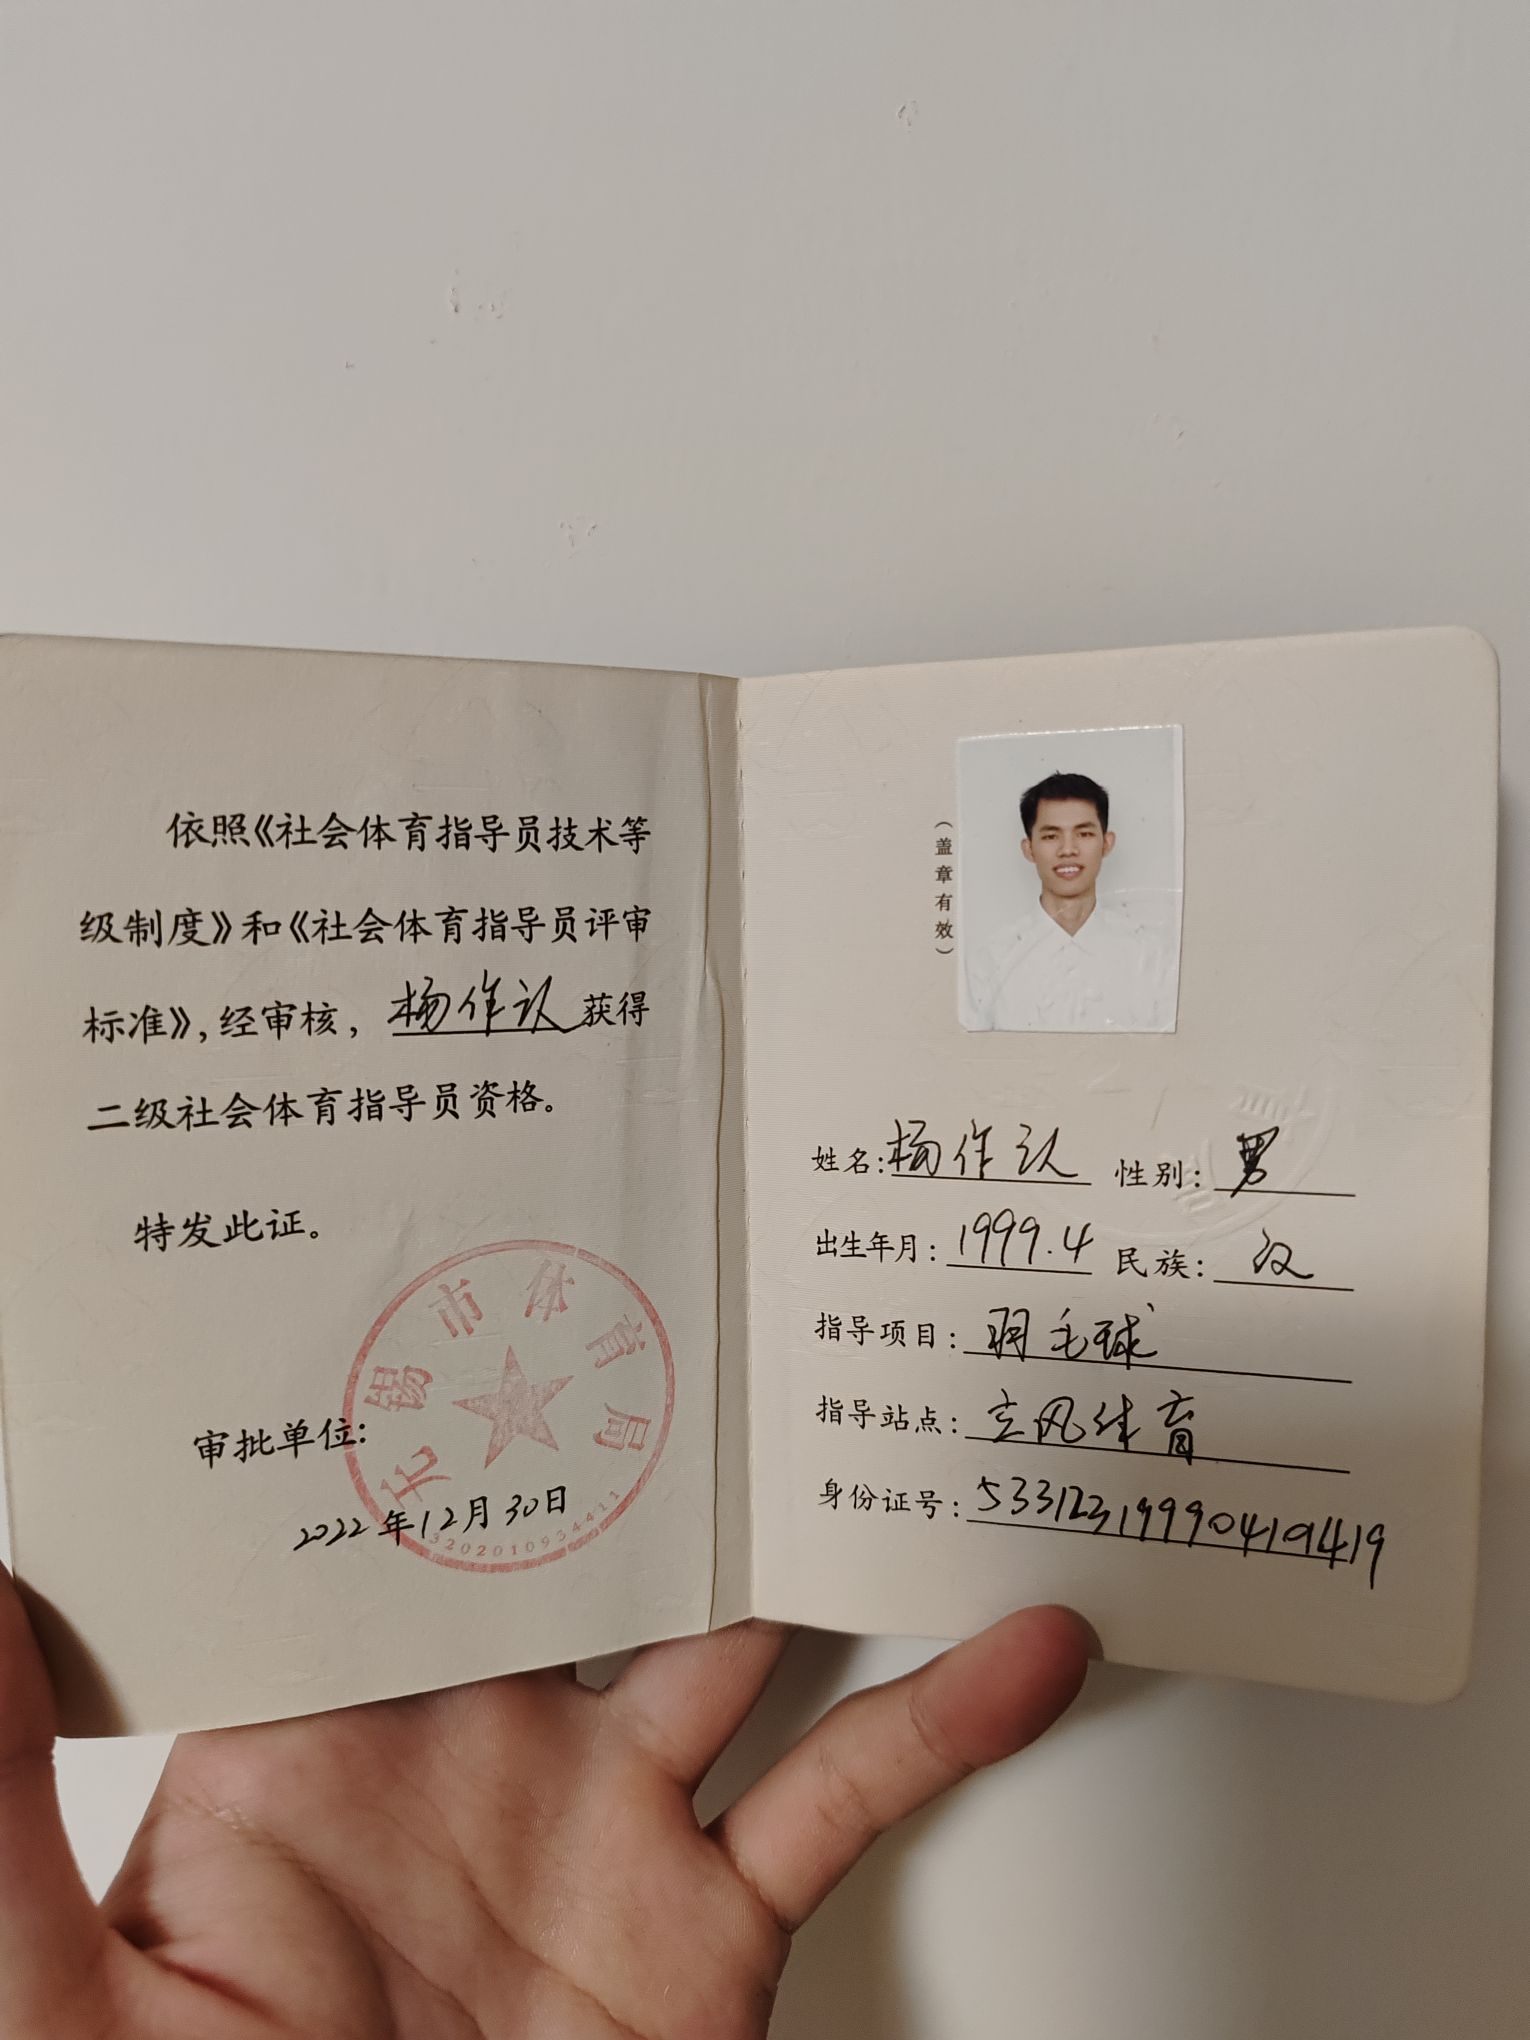 依照《社会体育指导员技术等
级制度》和《社会体育指导员评审
标准》，经审核，杨作认获得
二级社会体育指导员资格。
特发此证。
审批单位：
无锡市体育局
2022年12月30日
3202010934411
（盖章有效）
姓名：杨作认 性别：男
出生年月：1999.4 民族：汉
指导项目：羽毛球
指导站点：立风体育
身份证号：533123199904190419